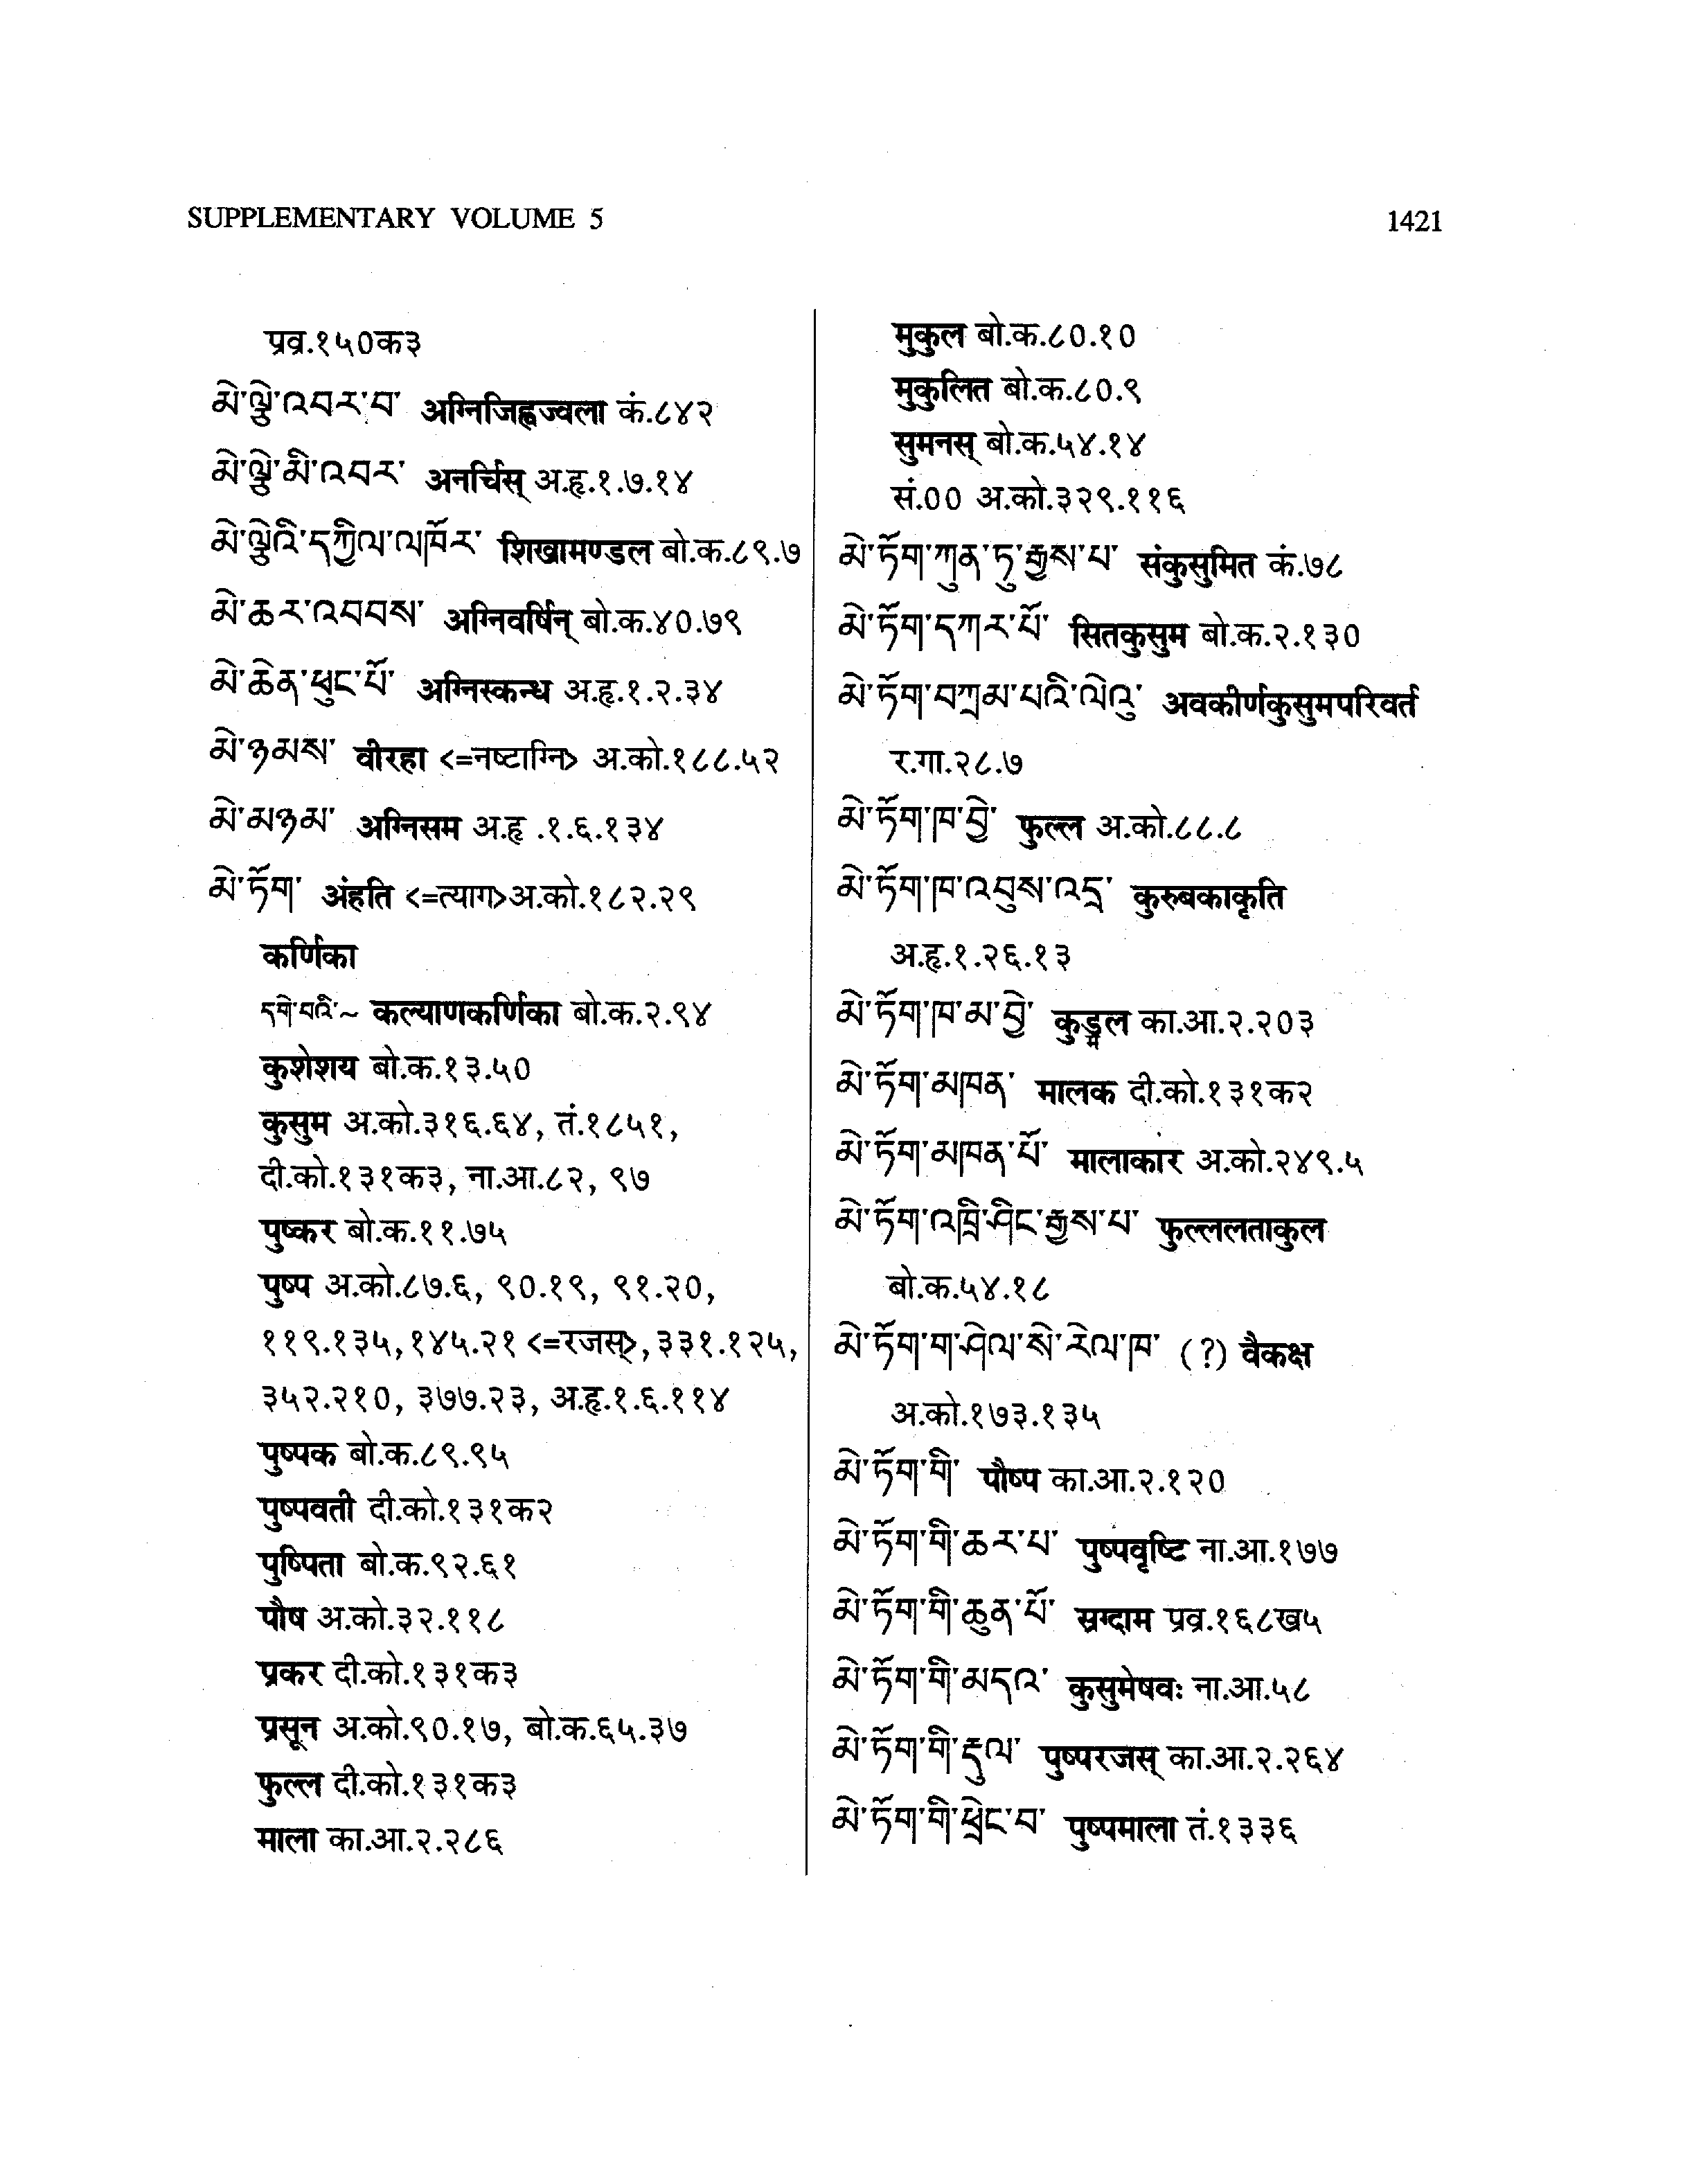 SUPPLEMENTARY VOLUME 5 1421
प्रव्र.१५०क३
མེ་ལྕེ་འབར་བ་ अग्निजिह्वज्वला कं.८४२
མེ་ལྕེ་མི་འབར་ अनर्चिस् अ.हृ.१.७.१४
མེ་ལྕེའི་དཀྱིལ་ལཁོར་ शिखामण्डल बो.क.८९.७
མེ་ཆར་འབབས་ अग्निवर्षिन् बो.क.४०.७९
མེ་ཆེན་ཕུང་པོ་ अग्निस्कन्ध अ.हृ.१.२.३४
མེ་ཉམས་ वीरहा <=नष्टाग्नि> अ.को.१८८.५२
མེ་མཉམ་ अग्निसम अ.हृ .१.६.१३४
མེ་ཏོག་ अंहति <=त्याग>अ.को.१८२.२९
कर्णिका
དགེ་བའི་~ कल्याणकर्णिका बो.क.२.९४
कुशेशय बो.क.१३.५०
कुसुम अ.को.३१६.६४, तं.१८५१,
दी.को.१३१क३, ना.आ.८२, ९७
पुष्कर बो.क.११.७५
पुष्प अ.को.८७.६, ९०.१९, ९१.२०,
११९.१३५,१४५.२१ <=रजस्>,३३१.१२५,
३५२.२१०, ३७७.२३, अ.हृ.१.६.११४
पुष्पक बो.क.८९.९५
पुष्पवती दी.को.१३१क२
पुष्पिता बो.क.९२.६१
पौष अ.को.३२.११८
प्रकर दी.को.१३१क३
प्रसून अ.को.९०.१७, बो.क.६५.३७
फुल्ल दी.को.१३१क३
माला का.आ.२.२८६
मुकुल बो.क.८०.१०
मुकुलित बो.क.८०.९
सुमनस् बो.क.५४.१४
सं.०० अ.को.३२९.११६
མེ་ཏོག་ཀུན་ཏུ་རྒྱས་པ་ संकुसुमित कं.७८
མེ་ཏོག་དཀར་པོ་ सितकुसुम बो.क.२.१३०
མེ་ཏོག་བཀྲམ་པའི་ལེའུ་ अवकीर्णकुसुमपरिवर्त
र.गा.२८.७
མེ་ཏོག་ཁ་བྱེ་ फुल्ल अ.को.८८.८
མེ་ཏོག་ཁ་འབུས་འདྲ་ कुरुबकाकृति
अ.हृ.१.२६.१३
མེ་ཏོག་ཁ་མ་བྱེ་ कुड्मल का.आ.२.२०३
མེ་ཏོག་མཁན་ मालक दी.को.१३१क२
མེ་ཏོག་མཁན་པོ་ मालाकार अ.को.२४९.५
མེ་ཏོག་འཁྲི་ཤིང་རྒྱས་པ་ फुल्ललताकुल
बो.क.५४.१८
མེ་ཏོག་ག་ཤེལ་སེ་རེལ་ཁ་ (?) वैकक्ष
अ.को.१७३.१३५
མེ་ཏོག་གི་ पौष्प का.आ.२.१२०
མེ་ཏོག་གི་ཆར་པ་ पुष्पवृष्टि ना.आ.१७७
མེ་ཏོག་གི་ཆུན་པོ་ स्रग्दाम प्रव्र.१६८ख५
མེ་ཏོག་གི་མདའ་ कुसुमेषवः ना.आ.५८
མེ་ཏོག་གི་རྡུལ་ पुष्परजस् का.आ.२.२६४
མེ་ཏོག་གི་ཕྲེང་བ་ पुष्पमाला तं.१३३६